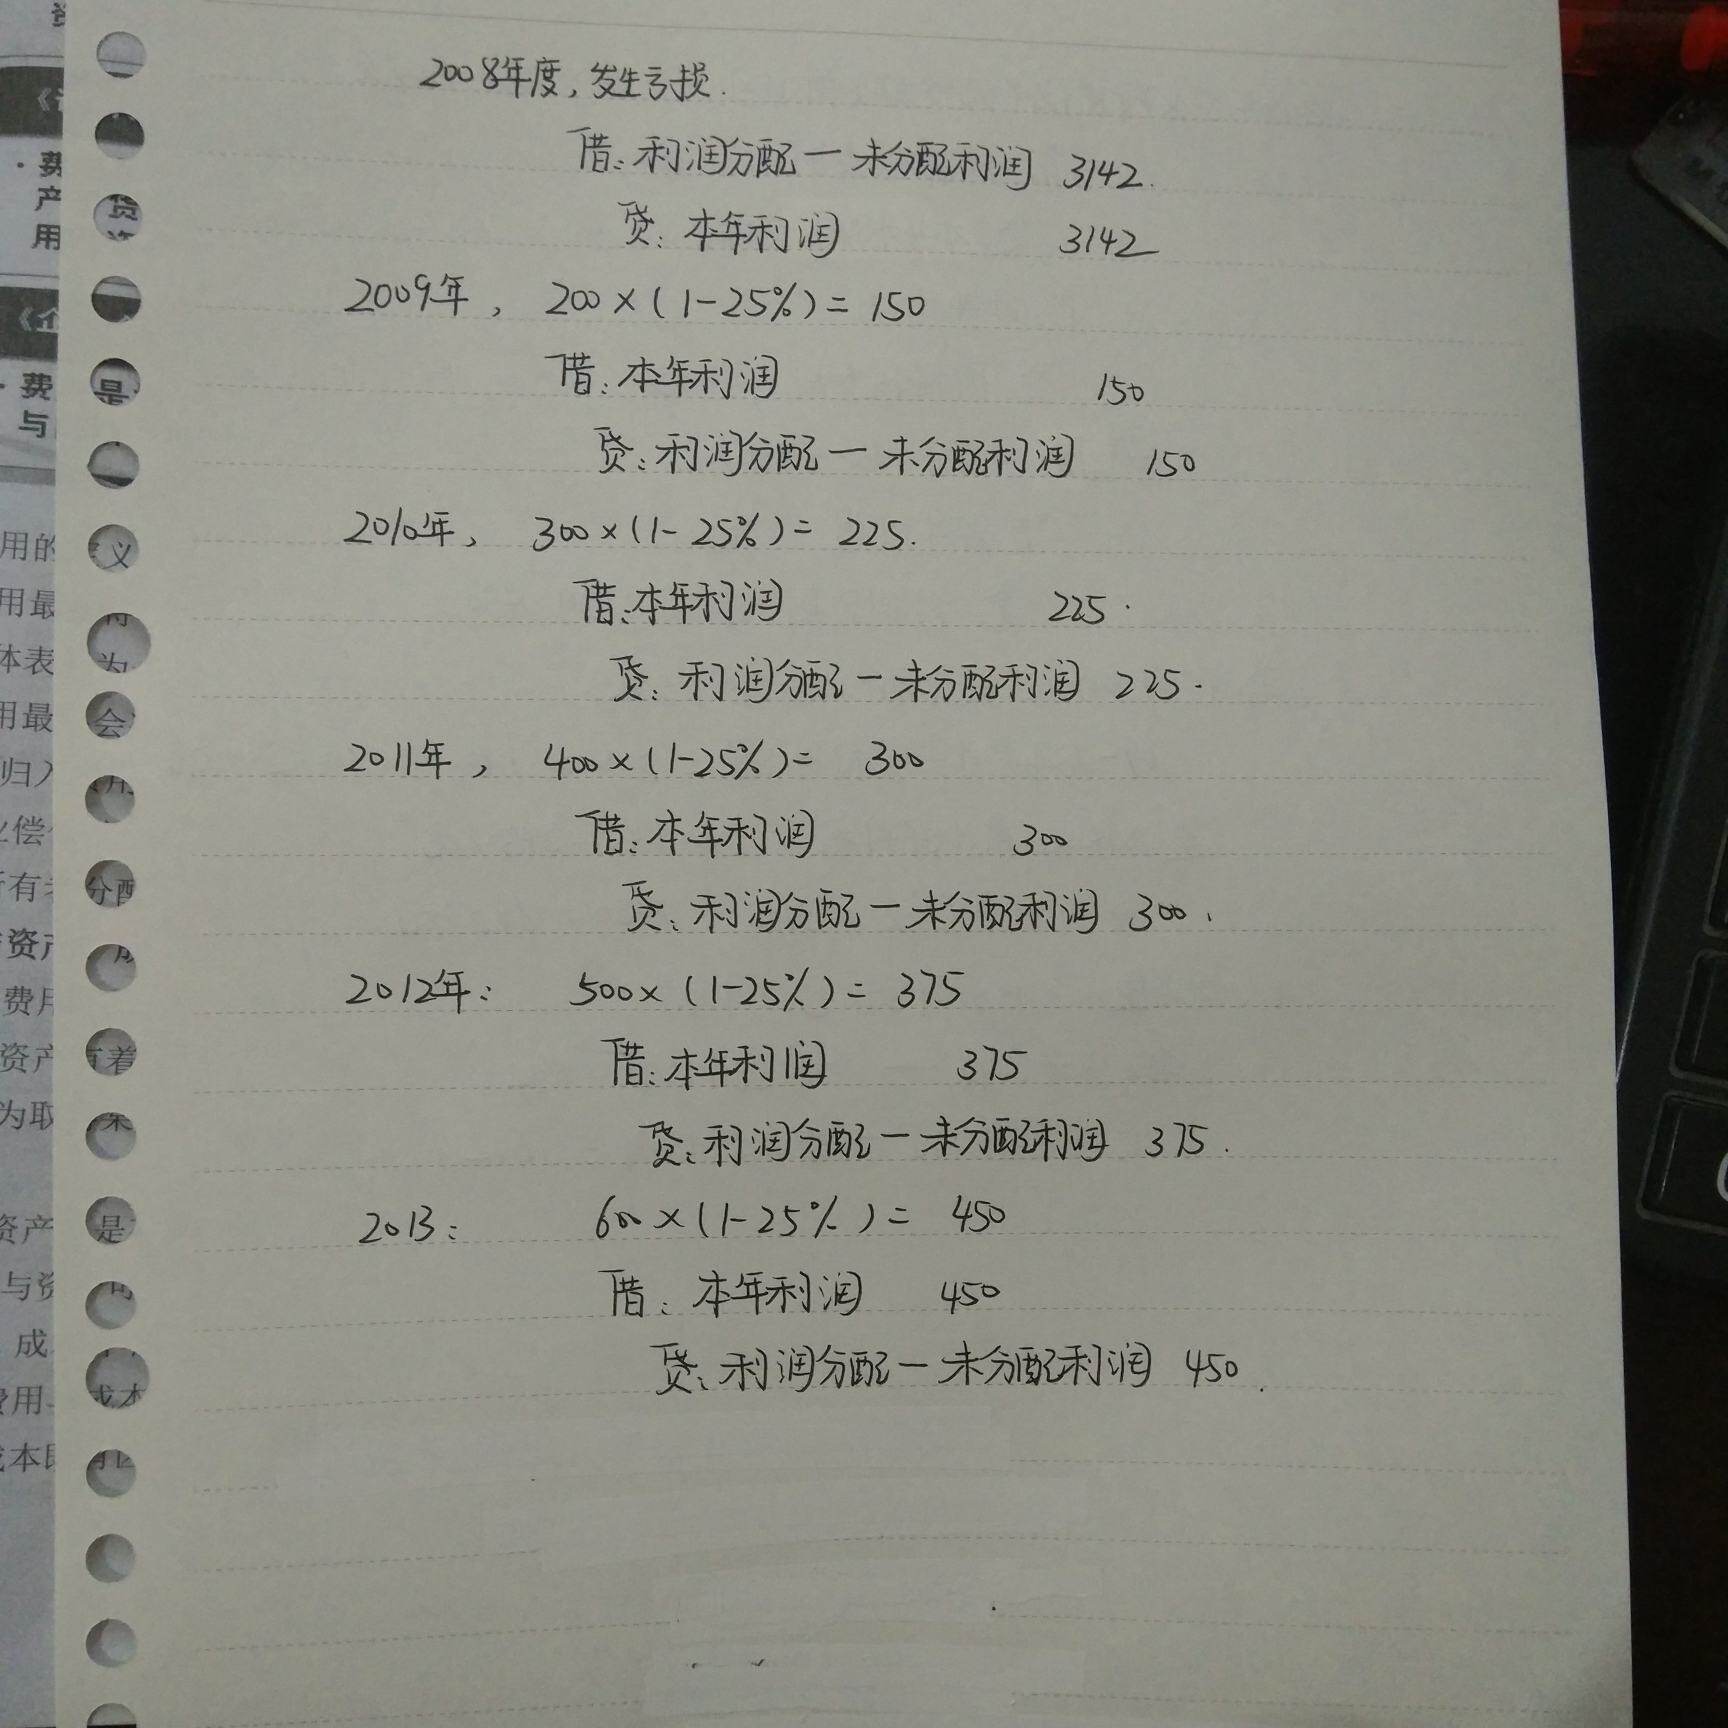 2008年度，发生亏损.
借：利润分配一未分配利润 3142.
贷：本年利润 3142
2009年， 200×(1-25%)=150
借：本年利润 150
贷：利润分配一未分配利润 150
2010年， 300×(1-25%)=225.
借：本年利润 225.
贷：利润分配一未分配利润 225.
2011年， 400×(1-25%)= 300
借：本年利润 300
贷：利润分配一未分配利润 300.
2012年： 500×(1-25%)=375
借：本年利润 375
贷：利润分配一未分配利润 375.
2013： 600×(1-25%)= 450
借：本年利润 450
贷：利润分配一未分配利润 450.